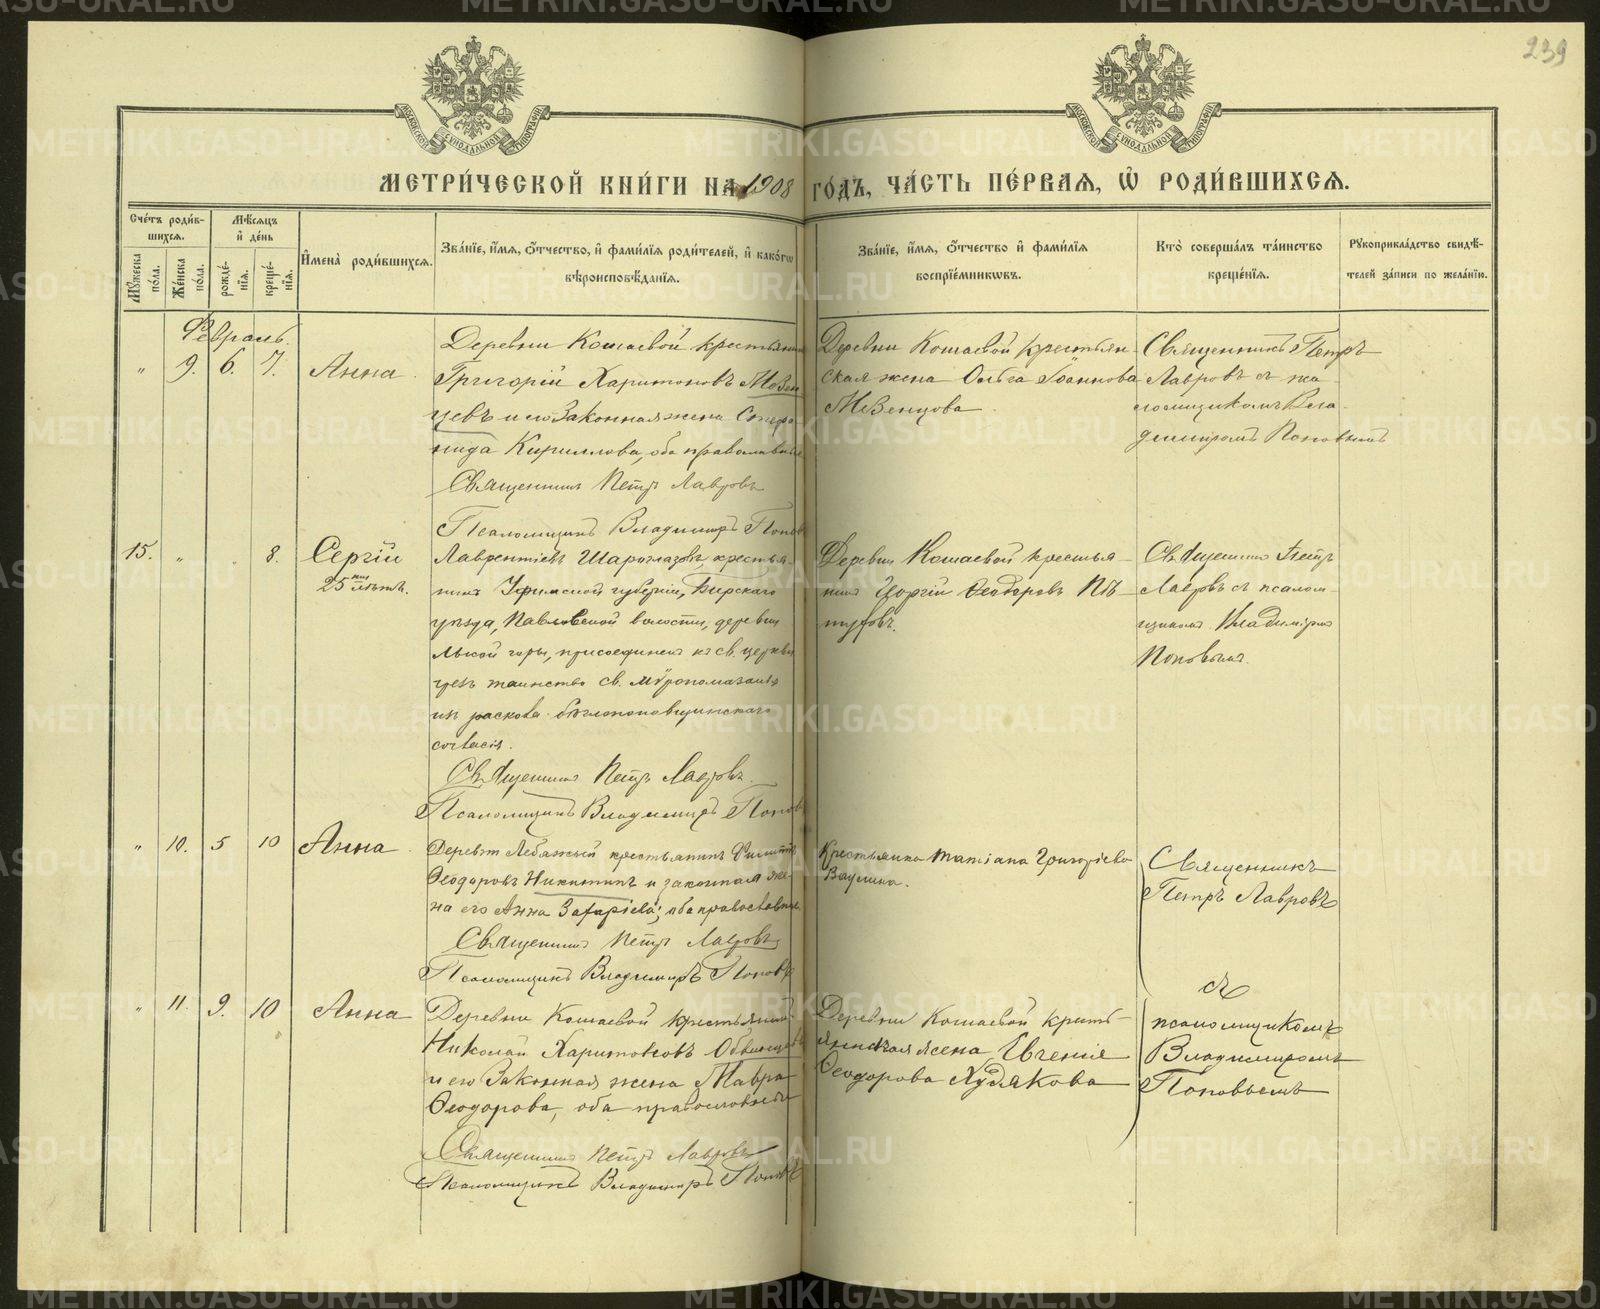 239
МОСКОВСКОЙ СѴНОДАЛЬНОЙ ТИПОГРАФІИ
МОСКОВСКОЙ СѴНОДАЛЬНОЙ ТИПОГРАФІИ
МЕТРИ́ЧЕСКОЙ КНИ́ГИ НА 1908 ГО́ДЪ, ЧА́СТЬ ПЕ́РВАЯ, Ѽ РОДИ́ВШИХСЯ.
Сче́тъ роди́в-
шихся.
Му́жеска по́ла.
Же́нска по́ла.
Мѣ́сяцъ
и҆ де́нь
рожде́-
нїя.
креще́-
нїя.
И҆мена̀ роди́вшихся.
Зва́нїе, и҆́мя, ѻ҆́тчество, и҆ фами́лїя роди́телей, и҆ како́гѡ
вѣроисповѣ́данїя.
Зва́нїе, и҆́мя, ѻ҆́тчество и҆ фами́лїя
воспрїе́мниковъ.
Кто̀ соверша́лъ та́инство
креще́нїя.
Рꙋкоприкла́дство свидѣ́-
телей за́писи по жела́нїю.
Февраль.
" 9. 6. 7. Анна.
Деревни Кошаевой крестьянинъ
Григорій Харитоновъ Мезен
цевъ и его законная жена Степа
нида Кириллова, оба православные
Священникъ Петръ Лавровъ
Псаломщикъ Владимиръ Поповъ
Деревни Кошаевой крестьян
ская жена Ольга Іоаннова
Мезенцова.
Священникъ Петръ
Лавровъ съ пса-
ломщикомъ Вла-
димиромъ Поповымъ
15. " . 8. Сергій
25 ти лѣтъ.
Лаврентіевъ Шароглазовъ, крестья-
нинъ Уфимской губерніи, Бирскаго
уѣзда, Павловской волости, деревни
горы, присоединенъ къ св. церкви
чрезъ таинство св. мѵропомазанія
изъ раскола бѣглопоповщинскаго
согласія.
Священникъ Петръ Лавровъ.
Псаломщикъ Владимиръ Поповъ
Деревни Кошаевой крестья-
нинъ Георгій Ѳеодоровъ Пѣ-
туховъ.
Священникъ Петръ
Лавровъ съ псалом-
щикомъ Владиміромъ
Поповымъ.
" 10. 5 10 Анна.
Деревни Лебяжьей крестьянинъ Филиппъ
Ѳеодоровъ Никитинъ и законная же-
на его Анна Захаріева; оба православные.
Священникъ Петръ Лавровъ
Псаломщикъ Владимиръ Поповъ
Крестьянка Татіана Григоріева
Ваулина.
Священникъ
Петръ Лавровъ
съ
" 11. 9. 10 Анна
Деревни Кошаевой крестьянинъ
Николай Харитоновъ Обвинцевъ
и его законная жена Мавра
Ѳеодорова, оба православные
Священникъ Петръ Лавровъ
Псаломщикъ Владимиръ Поповъ
Деревни Кошаевой кресть-
янская жена Евгенія
Ѳеодорова Худякова
псаломщикомъ
Владимиромъ
Поповымъ
METRIKI.GASO-URAL.RU